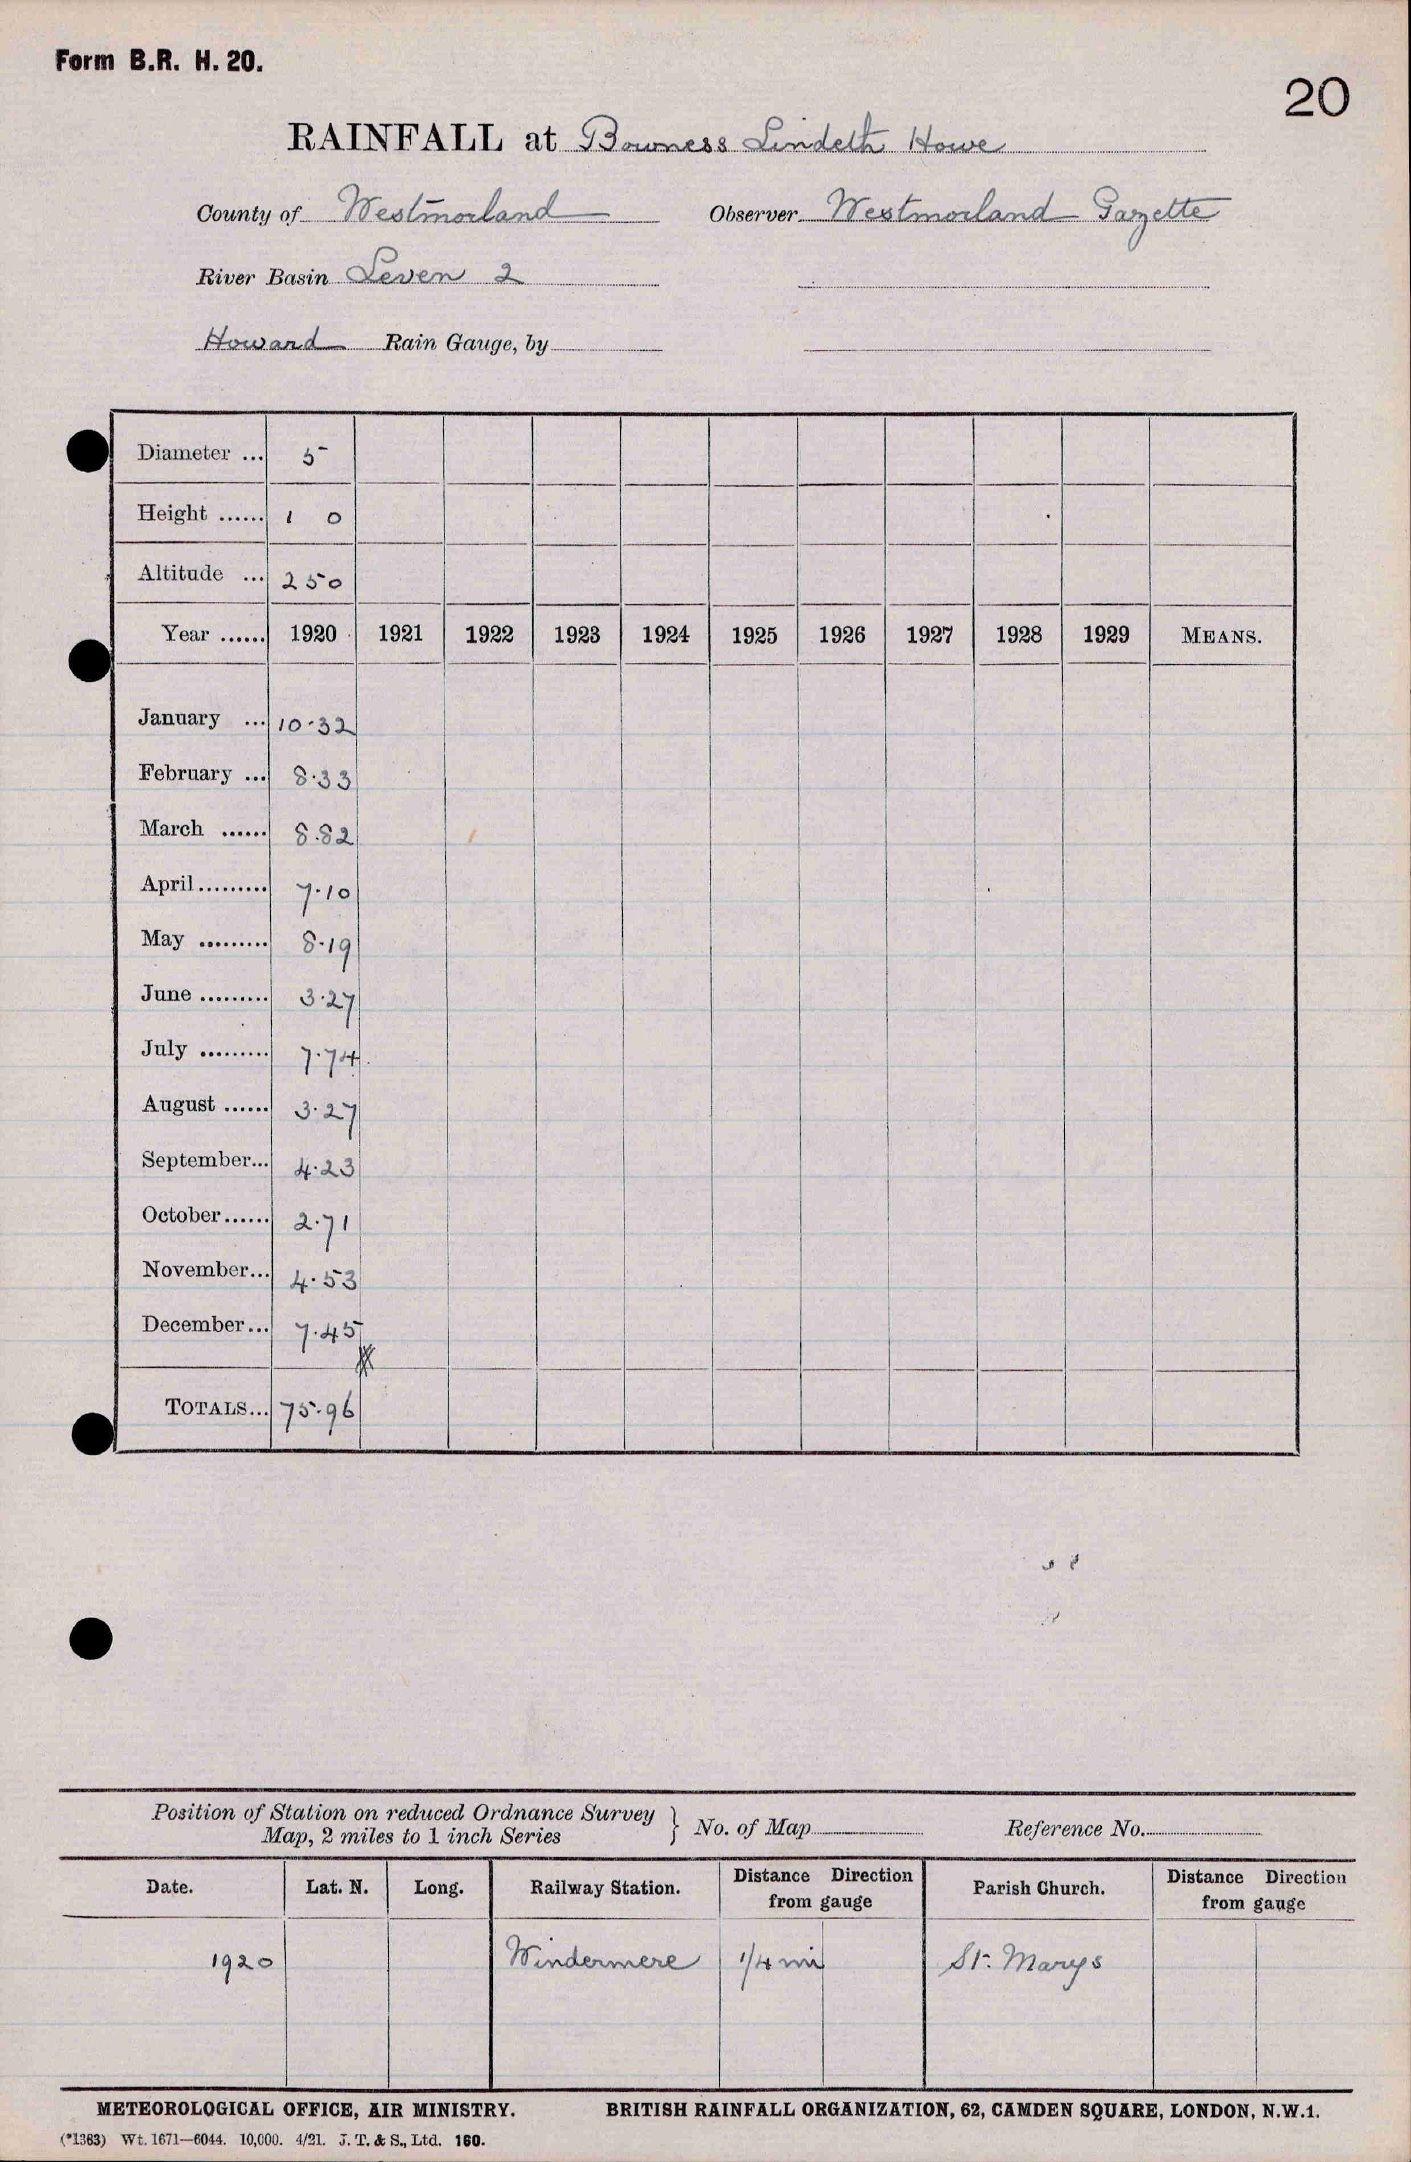 Form B.R. H. 20.
20
RAINFALL at Bowness Lindeth Howe
County of Westmorland Observer Westmorland Gazette
River Basin Leven 2
Howard Rain Gauge, by
Diameter ... 5
Height ...... 1 0
Altitude ... 250
Year ...... 1920 1921 1922 1923 1924 1925 1926 1927 1928 1929 MEANS.
January ... 10.32
February ... 8.33
March ...... 8.82
April ......... 7.10
May ......... 8.19
June ......... 3.27
July ......... 7.74
August ...... 3.27
September... 4.23
October...... 2.71
November... 4.53
December... 7.45
TOTALS... 75.96
Position of Station on reduced Ordnance Survey
Map, 2 miles to 1 inch Series } No. of Map Reference No.
Date. Lat. N. Long. Railway Station. Distance Direction from gauge Parish Church. Distance Direction from gauge
1920 Windermere 1/4 mi St. Marys
METEOROLOGICAL OFFICE, AIR MINISTRY. BRITISH RAINFALL ORGANIZATION, 62, CAMDEN SQUARE, LONDON, N.W.1.
(*1363) Wt. 1671—6044. 10,000. 4/21. J. T. & S., Ltd. 160.